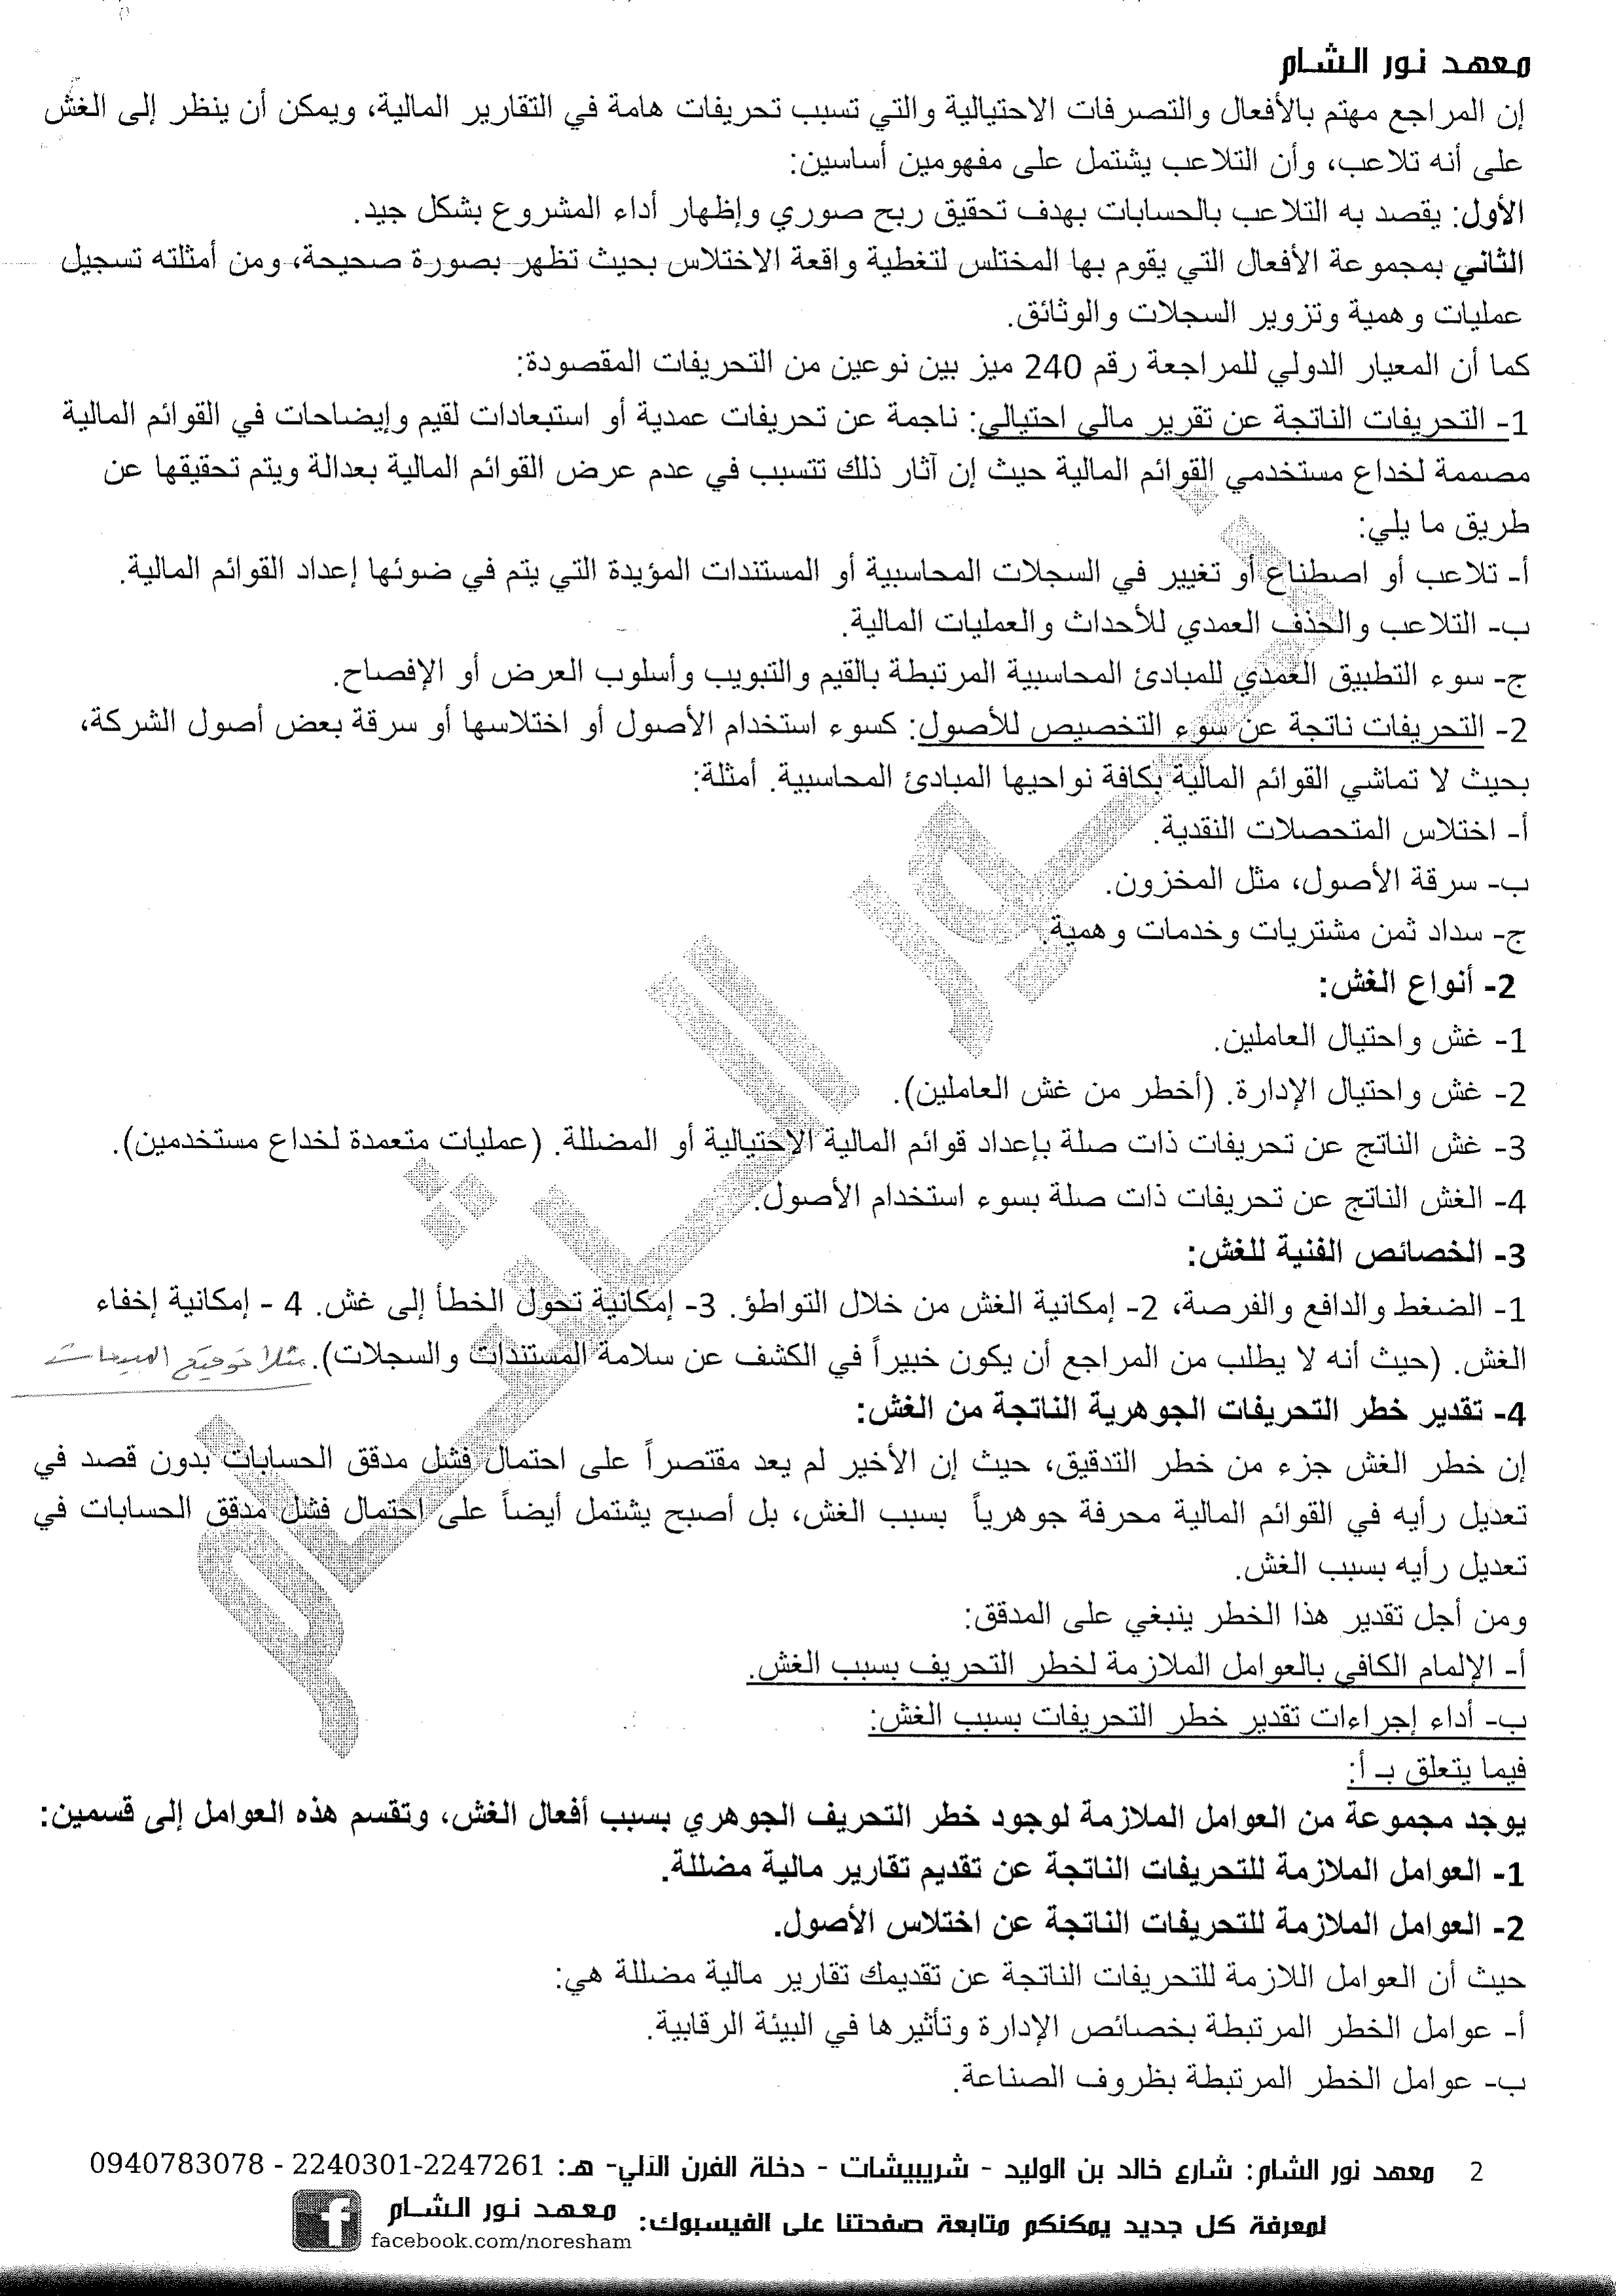 معهد نور الشام
إن المراجع مهتم بالأفعال والتصرفات الاحتيالية والتي تسبب تحريفات هامة في التقارير المالية، ويمكن أن ينظر إلى الغش
على أنه تلاعب، وأن التلاعب يشتمل على مفهومين أساسين:
الأول: يقصد به التلاعب بالحسابات بهدف تحقيق ربح صوري وإظهار أداء المشروع بشكل جيد.
الثاني بمجموعة الأفعال التي يقوم بها المختلس لتغطية واقعة الاختلاس بحيث تظهر بصورة صحيحة، ومن أمثلته تسجيل
عمليات وهمية وتزوير السجلات والوثائق.
كما أن المعيار الدولي للمراجعة رقم 240 ميز بين نوعين من التحريفات المقصودة:
1- التحريفات الناتجة عن تقرير مالي احتيالي: ناجمة عن تحريفات عمدية أو استبعادات لقيم وإيضاحات في القوائم المالية
مصممة لخداع مستخدمي القوائم المالية حيث إن آثار ذلك تتسبب في عدم عرض القوائم المالية بعدالة ويتم تحقيقها عن
طريق ما يلي:
أ- تلاعب أو اصطناع أو تغيير في السجلات المحاسبية أو المستندات المؤيدة التي يتم في ضوئها إعداد القوائم المالية.
ب- التلاعب والحذف العمدي للأحداث والعمليات المالية.
ج- سوء التطبيق العمدي للمبادئ المحاسبية المرتبطة بالقيم والتبويب وأسلوب العرض أو الإفصاح.
2- التحريفات ناتجة عن سوء التخصيص للأصول: كسوء استخدام الأصول أو اختلاسها أو سرقة بعض أصول الشركة،
بحيث لا تماشي القوائم المالية بكافة نواحيها المبادئ المحاسبية. أمثلة:
أ- اختلاس المتحصلات النقدية.
ب- سرقة الأصول، مثل المخزون.
ج- سداد ثمن مشتريات وخدمات وهمية.
2- أنواع الغش:
1- غش واحتيال العاملين.
2- غش واحتيال الإدارة. (أخطر من غش العاملين).
3- غش الناتج عن تحريفات ذات صلة بإعداد قوائم المالية الاحتيالية أو المضللة. (عمليات متعمدة لخداع مستخدمين).
4- الغش الناتج عن تحريفات ذات صلة بسوء استخدام الأصول.
3- الخصائص الفنية للغش:
1- الضغط والدافع والفرصة، 2- إمكانية الغش من خلال التواطؤ. 3- إمكانية تحول الخطأ إلى غش. 4 - إمكانية إخفاء
الغش. (حيث أنه لا يطلب من المراجع أن يكون خبيراً في الكشف عن سلامة المستندات والسجلات). مثلا
4- تقدير خطر التحريفات الجوهرية الناتجة من الغش:
إن خطر الغش جزء من خطر التدقيق، حيث إن الأخير لم يعد مقتصراً على احتمال فشل مدقق الحسابات بدون قصد في
تعديل رأيه في القوائم المالية محرفة جوهرياً بسبب الغش، بل أصبح يشتمل أيضاً على احتمال فشل مدقق الحسابات في
تعديل رأيه بسبب الغش.
ومن أجل تقدير هذا الخطر ينبغي على المدقق:
أ- الإلمام الكافي بالعوامل الملازمة لخطر التحريف بسبب الغش.
ب- أداء إجراءات تقدير خطر التحريفات بسبب الغش:
فيما يتعلق بـ أ:
يوجد مجموعة من العوامل الملازمة لوجود خطر التحريف الجوهري بسبب أفعال الغش، وتقسم هذه العوامل إلى قسمين:
1- العوامل الملازمة للتحريفات الناتجة عن تقديم تقارير مالية مضللة.
2- العوامل الملازمة للتحريفات الناتجة عن اختلاس الأصول.
حيث أن العوامل اللازمة للتحريفات الناتجة عن تقديمك تقارير مالية مضللة هي:
أ- عوامل الخطر المرتبطة بخصائص الإدارة وتأثيرها في البيئة الرقابية.
ب- عوامل الخطر المرتبطة بظروف الصناعة.
2 معهد نور الشام: شارع خالد بن الوليد - شريبيشات - دخلة الفرن الآلي- هـ: 2247261-2240301 - 0940783078
لمعرفة كل جديد يمكنكم متابعة صفحتنا على الفيسبوك: معهد نور الشام
facebook.com/noresham
نور الشام